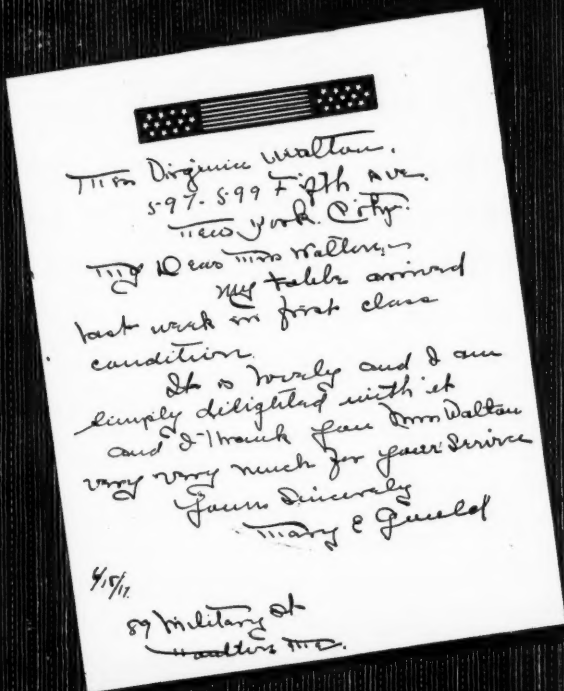 Miss Virginia Walton.
597-599 Fifth Ave.
New York. City.
My Dear Miss Walton,
My table arrived
last week in first class
condition.
It is lovely and I am
simply delighted with it
and I thank you Miss Walton
very very much for your service
Yours Sincerely
Mary E
6/15/17.
89 Military St
Houlton Me.